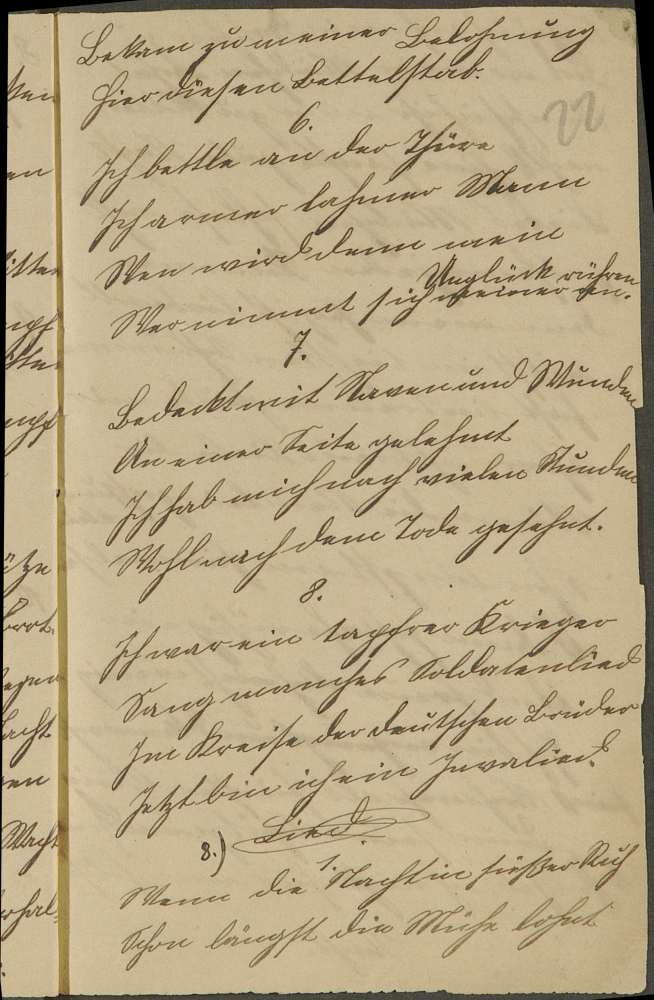 Bekam zu meiner Belohnung
Hier diesen Bettelstab.
22
6.
Ich bettle an der Thüre
Ich armer lahmer Mann
Wen wird denn mein
Unglück rühren
Wer nimmt sich meiner an.
7.
Bedeckt mit Narven und Wunden
An einer Seite gelehnt
Ich hab mich nach vielen Stunden
Wohl nach dem Tode gesehnt.
8.
Ich war ein tapfrer Krieger
Sang manches Soldatenlied
Im Kreise der deutschen Brüder
Jetzt bin ich ein Invalied.
8.) Lied
1.
Wenn die Nacht in süßer Ruh
Schon längst die Mühe lohnt